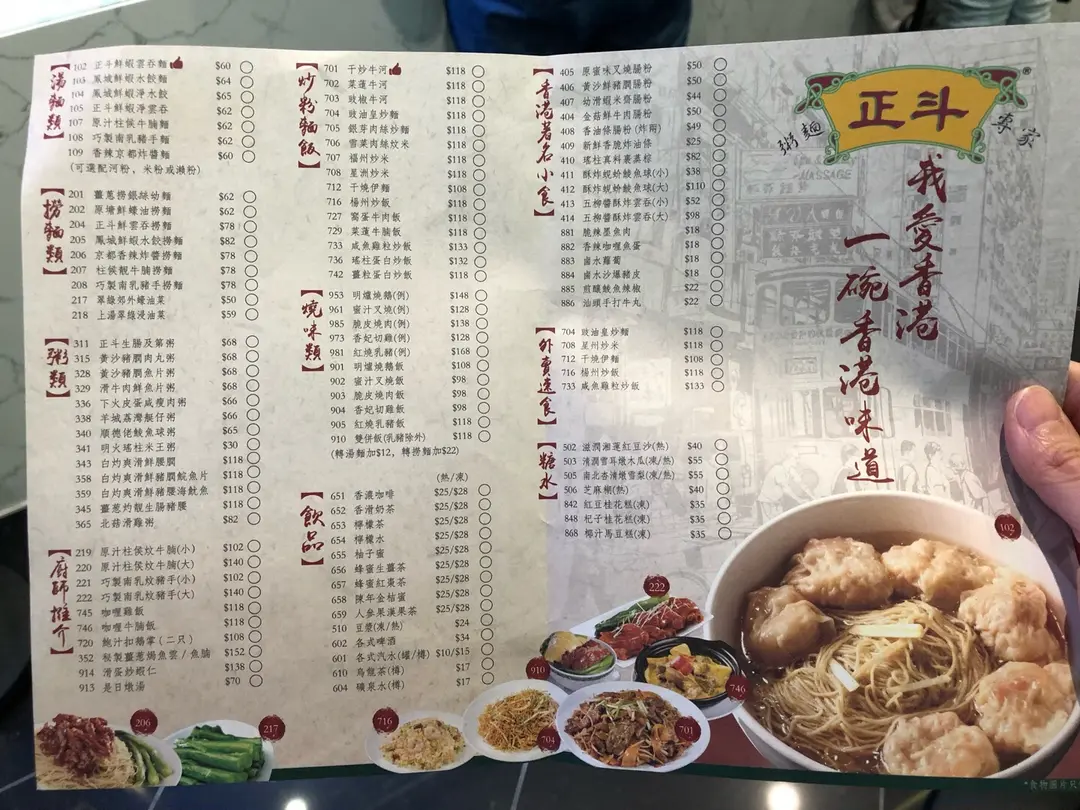 【湯麵類】
102 正斗鮮蝦雲吞麵 $60
103 鳳城鮮蝦水餃麵 $64
104 鳳城鮮蝦淨水餃 $65
105 正斗鮮蝦淨雲吞 $62
107 原汁柱侯牛腩麵 $62
108 巧製南乳豬手麵 $62
109 香辣京都炸醬麵 $60
(可選配河粉、米粉或瀨粉)
【撈麵類】
201 薑蔥撈銀絲幼麵 $62
202 原塘鮮蠔油撈麵 $62
204 正斗鮮雲吞撈麵 $78
205 鳳城鮮蝦水餃撈麵 $82
206 京都香辣炸醬撈麵 $78
207 柱侯靚牛腩撈麵 $78
208 巧製南乳豬手撈麵 $78
217 翠綠郊外綫油菜 $50
218 上湯翠綠浸油菜 $59
【粥類】
311 正斗生腸及第粥 $68
315 黃沙豬膶肉丸粥 $68
328 黃沙豬膶魚片粥 $68
329 滑牛肉鮮魚片粥 $68
336 下火皮蛋咸瘦肉粥 $66
338 羊城荔灣艇仔粥 $66
340 順德佬鮫魚球粥 $65
341 明火瑤柱米王粥 $30
343 白灼爽滑鮮腰膶 $118
358 白灼爽滑鮮豬膶鯇魚片 $118
359 白灼爽滑鮮豬腰海魷魚 $118
345 薑蔥灼靚生腸豬腰 $118
365 北菇滑雞粥 $82
【廚師推介】
219 原汁柱侯炆牛腩(小) $102
220 原汁柱侯炆牛腩(大) $140
221 巧製南乳炆豬手(小) $102
222 巧製南乳炆豬手(大) $140
745 咖喱雞飯 $118
746 咖喱牛腩飯 $118
720 鮑汁扣鵝掌(二只) $108
352 秘製薑蔥焗魚雲/魚腩 $152
914 滑蛋炒蝦仁 $138
913 是日燉湯 $70
206
217
【炒粉麵飯】
701 干炒牛河 $118
702 菜薳牛河 $118
703 豉椒牛河 $118
704 豉油皇炒麵 $118
705 銀芽肉絲炒麵 $118
706 雪菜肉絲炆米 $118
707 福州炒米 $118
708 星洲炒米 $118
712 干燒伊麵 $108
716 楊州炒飯 $118
727 窩蛋牛肉飯 $118
729 菜薳牛腩飯 $118
733 咸魚雞粒炒飯 $133
736 瑤柱蛋白炒飯 $132
742 薑粒蛋白炒飯 $118
【燒味類】
953 明爐燒鵝(例) $148
961 蜜汁叉燒(例) $128
985 脆皮燒肉(例) $138
973 香妃切雞(例) $128
981 紅燒乳豬(例) $168
901 明爐燒鵝飯 $118
902 蜜汁叉燒飯 $98
903 脆皮燒肉飯 $98
904 香妃切雞飯 $98
905 紅燒乳豬飯 $118
910 雙併飯(乳豬除外) $118
(轉湯麵加$12, 轉撈麵加$22)
【飲品】
(熱/凍)
651 香濃咖啡 $25/$28
652 香滑奶茶 $25/$28
653 檸檬茶 $25/$28
654 檸檬水 $25/$28
655 柚子蜜 $25/$28
656 蜂蜜生薑茶 $25/$28
657 蜂蜜紅棗茶 $25/$28
658 陳年金桔蜜 $25/$28
659 人參果漢果茶 $25/$28
510 豆漿(凍/熱) $24
602 各式啤酒 $34
601 各式汽水(罐/樽) $10/$15
610 烏龍茶(樽) $17
604 礦泉水(樽) $17
716
704
701
【香港著名小食】
405 原蜜味叉燒腸粉 $50
406 黃沙鮮豬膶腸粉 $50
407 幼滑蝦米齋腸粉 $44
404 金菇鮮牛肉腸粉 $50
408 香油條腸粉(炸兩) $49
409 新鮮香脆炸油條 $25
410 瑤柱真料裹蒸粽 $82
411 酥炸蜆蚧鯪魚球(小) $38
412 酥炸蜆蚧鯪魚球(大) $110
413 五柳醬酥炸雲吞(小) $52
414 五柳醬酥炸雲吞(大) $98
881 脆辣墨魚肉 $18
882 香辣咖喱魚蛋 $18
883 鹵水蘿蔔 $18
884 鹵水沙爆豬皮 $18
885 煎釀鮫魚辣椒 $22
886 汕頭手打牛丸 $22
【外賣速食】
704 豉油皇炒麵 $118
708 星州炒米 $118
712 干燒伊麵 $108
716 楊州炒飯 $118
733 咸魚雞粒炒飯 $133
【糖水】
502 滋潤湘蓮紅豆沙(熱) $40
503 清潤雪耳燉木瓜(凍/熱) $55
505 南北杏清燉雪梨(凍/熱) $55
506 芝麻糊(熱) $40
842 紅豆桂花糕(凍) $35
848 杞子桂花糕(凍) $35
868 椰汁馬豆糕(凍) $35
222
910
746
102
粥麵 正斗 專家 ®
MASSAGE
我愛香港
一碗香港味道